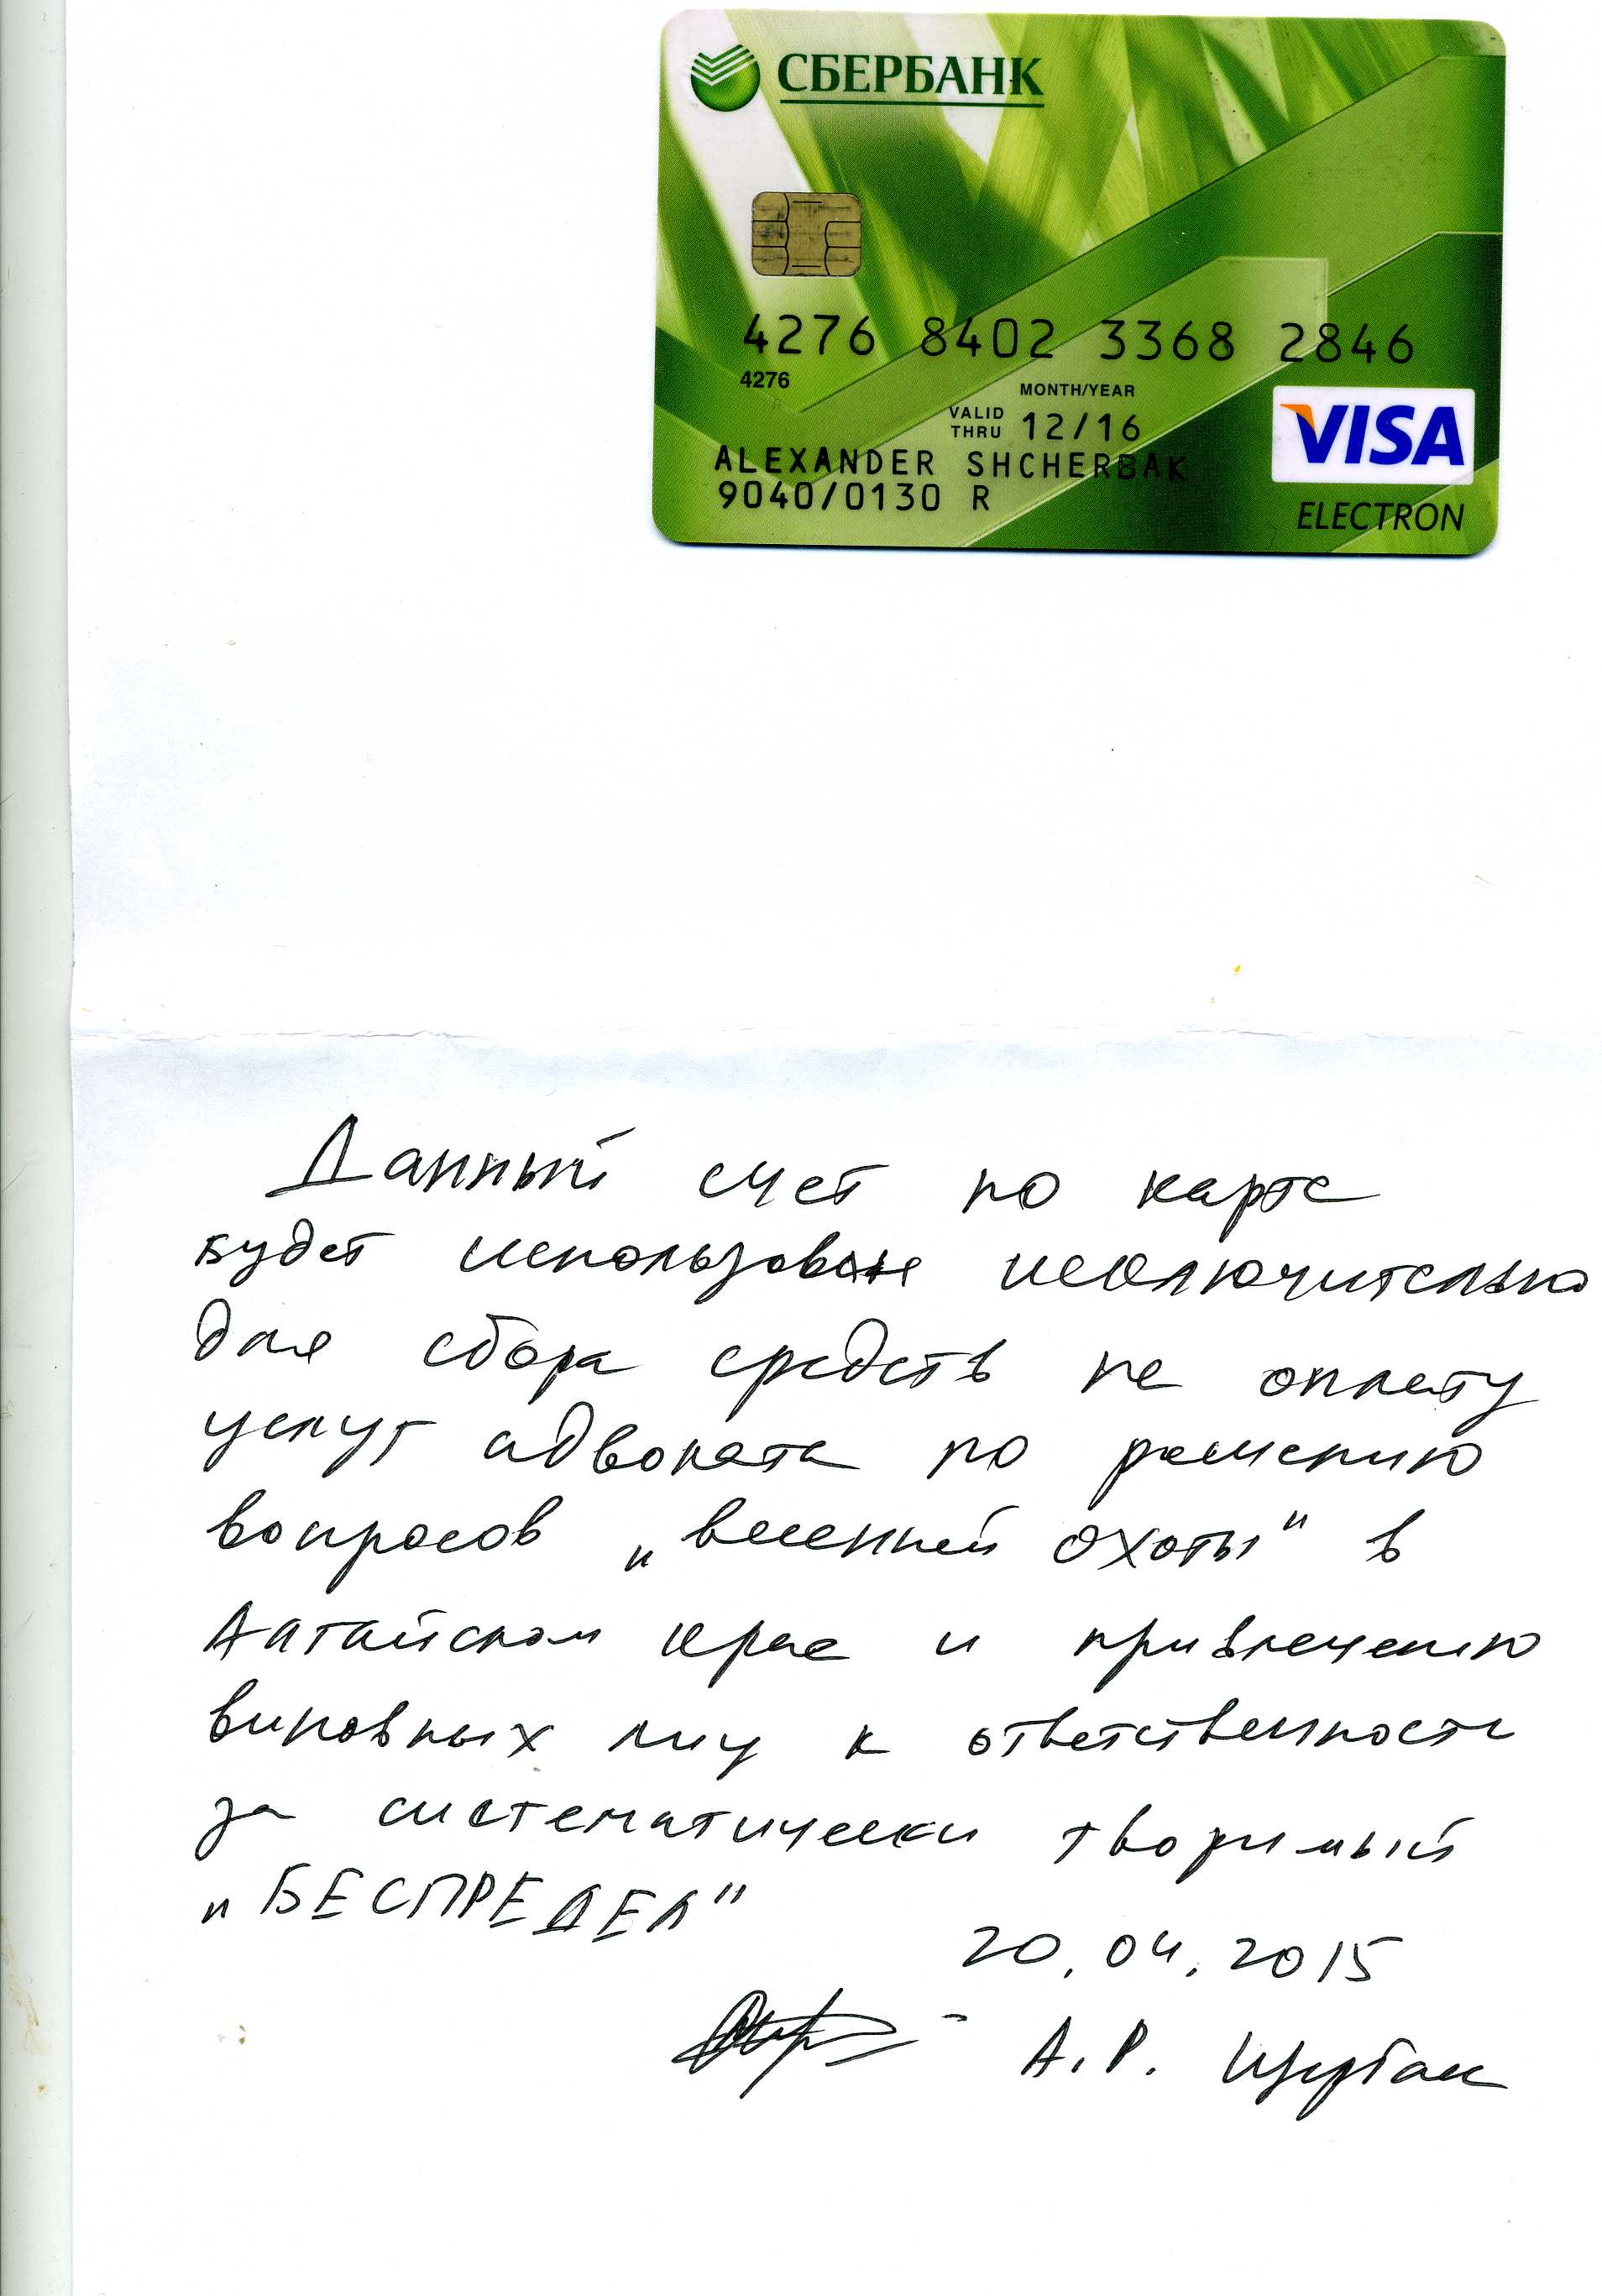 СБЕРБАНК
4276 8402 3368 2846
4276
MONTH/YEAR
VALID THRU 12/16
ALEXANDER SHCHERBAK
9040/0130 R
VISA
ELECTRON
Данный счет по карте
будет использован исключительно
для сбора средств на оплату
услуг адвоката по решению
вопросов „весенней охоты" в
Алтайском крае и привлечению
виновных лиц к ответственности
за систематически творимый
„БЕСПРЕДЕЛ"
20.04.2015
А.Р. Щербак